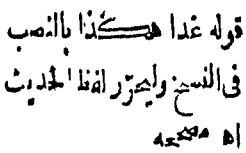 قوله غدا هكذا بالنصب
فى النسخ وليحرّر لفظ الحديث
اه مصححه